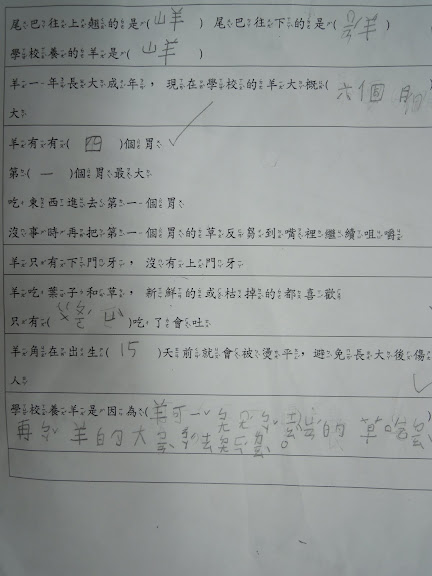 尾巴往上翹的是(山羊) 尾巴往下的是(羊)
學校養的羊是(山羊)
羊一年長大成年，現在學校的羊大概(六個月)
大
羊有有(四)個胃
第(一)個胃最大
吃東西進去第一個胃
沒事時再把第一個胃的草反芻到嘴裡繼續咀嚼
羊只有下門牙，沒有上門牙
羊吃葉子和草，新鮮的或枯掉的都喜歡
只有( )吃了會吐
羊角在出生(15)天前就會被燙平，避免長大後傷
人
學校養羊是因為(羊可一
再 羊的大 的草